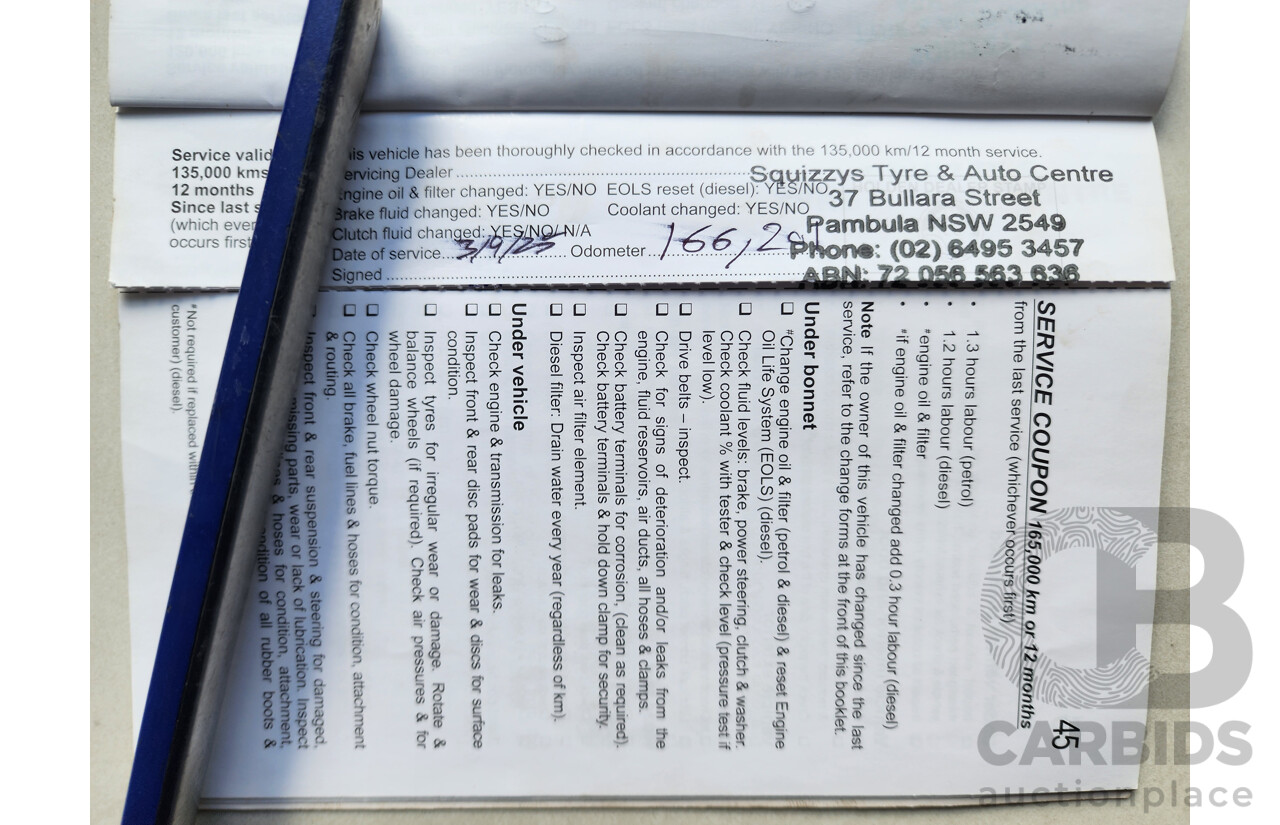 Service valid
135,000 kms
12 months
Since last
(which ever
occurs first
is vehicle has been thoroughly checked in accordance with the 135,000 km/12 month service.
ervicing Dealer
Engine oil & filter changed: YES/NO EOLS reset (diesel): YES/NO
Brake fluid changed: YES/NO Coolant changed: YES/NO
Clutch fluid changed: YES/NO/ N/A
Date of service 3/9/23 Odometer
Signed
Squizzys Tyre & Auto Centre
37 Bullara Street
Pambula NSW 2549
Phone: (02) 6495 3457
ABN: 72 056 563 636
45
SERVICE COUPON 165,000 km or 12 months
from the last service (whichever occurs first)
• 1.3 hours labour (petrol)
• 1.2 hours labour (diesel)
• *engine oil & filter
• *if engine oil & filter changed add 0.3 hour labour (diesel)
Note If the owner of this vehicle has changed since the last
service, refer to the change forms at the front of this booklet.
Under bonnet
❑ *Change engine oil & filter (petrol & diesel) & reset Engine
Oil Life System (EOLS) (diesel).
❑ Check fluid levels: brake, power steering, clutch & washer.
Check coolant % with tester & check level (pressure test if
level low).
❑ Drive belts – inspect.
❑ Check for signs of deterioration and/or leaks from the
engine, fluid reservoirs, air ducts, all hoses & clamps.
❑ Check battery terminals for corrosion, (clean as required).
Check battery terminals & hold down clamp for security.
❑ Inspect air filter element.
❑ Diesel filter: Drain water every year (regardless of km).
Under vehicle
❑ Check engine & transmission for leaks.
❑ Inspect front & rear disc pads for wear & discs for surface
condition.
❑ Inspect tyres for irregular wear or damage. Rotate &
balance wheels (if required). Check air pressures & for
wheel damage.
❑ Check wheel nut torque.
❑ Check all brake, fuel lines & hoses for condition, attachment
& routing.
Inspect front & rear suspension & steering for damaged,
missing parts, wear or lack of lubrication. Inspect
& hoses for condition, attachment,
condition of all rubber boots &
*Not required if replaced within
customer) (diesel).
CARBIDS
auctionplace